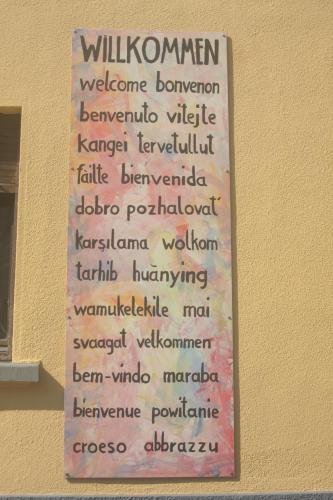 WILLKOMMEN
welcome bonvenon
benvenuto vitejte
kangei tervetullut
fáilte bienvenida
dobro pozhalovat'
karşılama wolkom
tarhib huānying
wamukelekile mai
svaagat velkommen
bem-vindo maraba
bienvenue powitanie
croeso abbrazzu